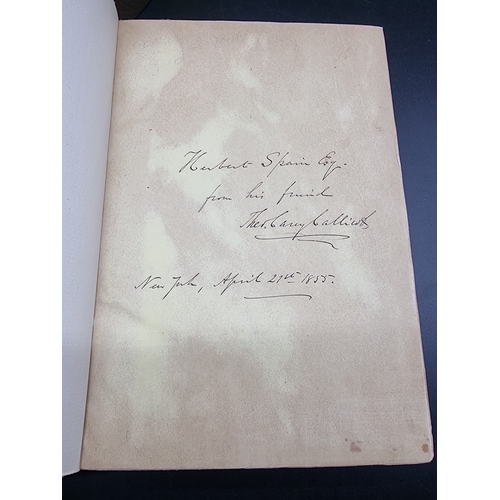 Herbert Spain Esq.
from his friend
Theo. Carey Callicot
New York, April 21st 1855.